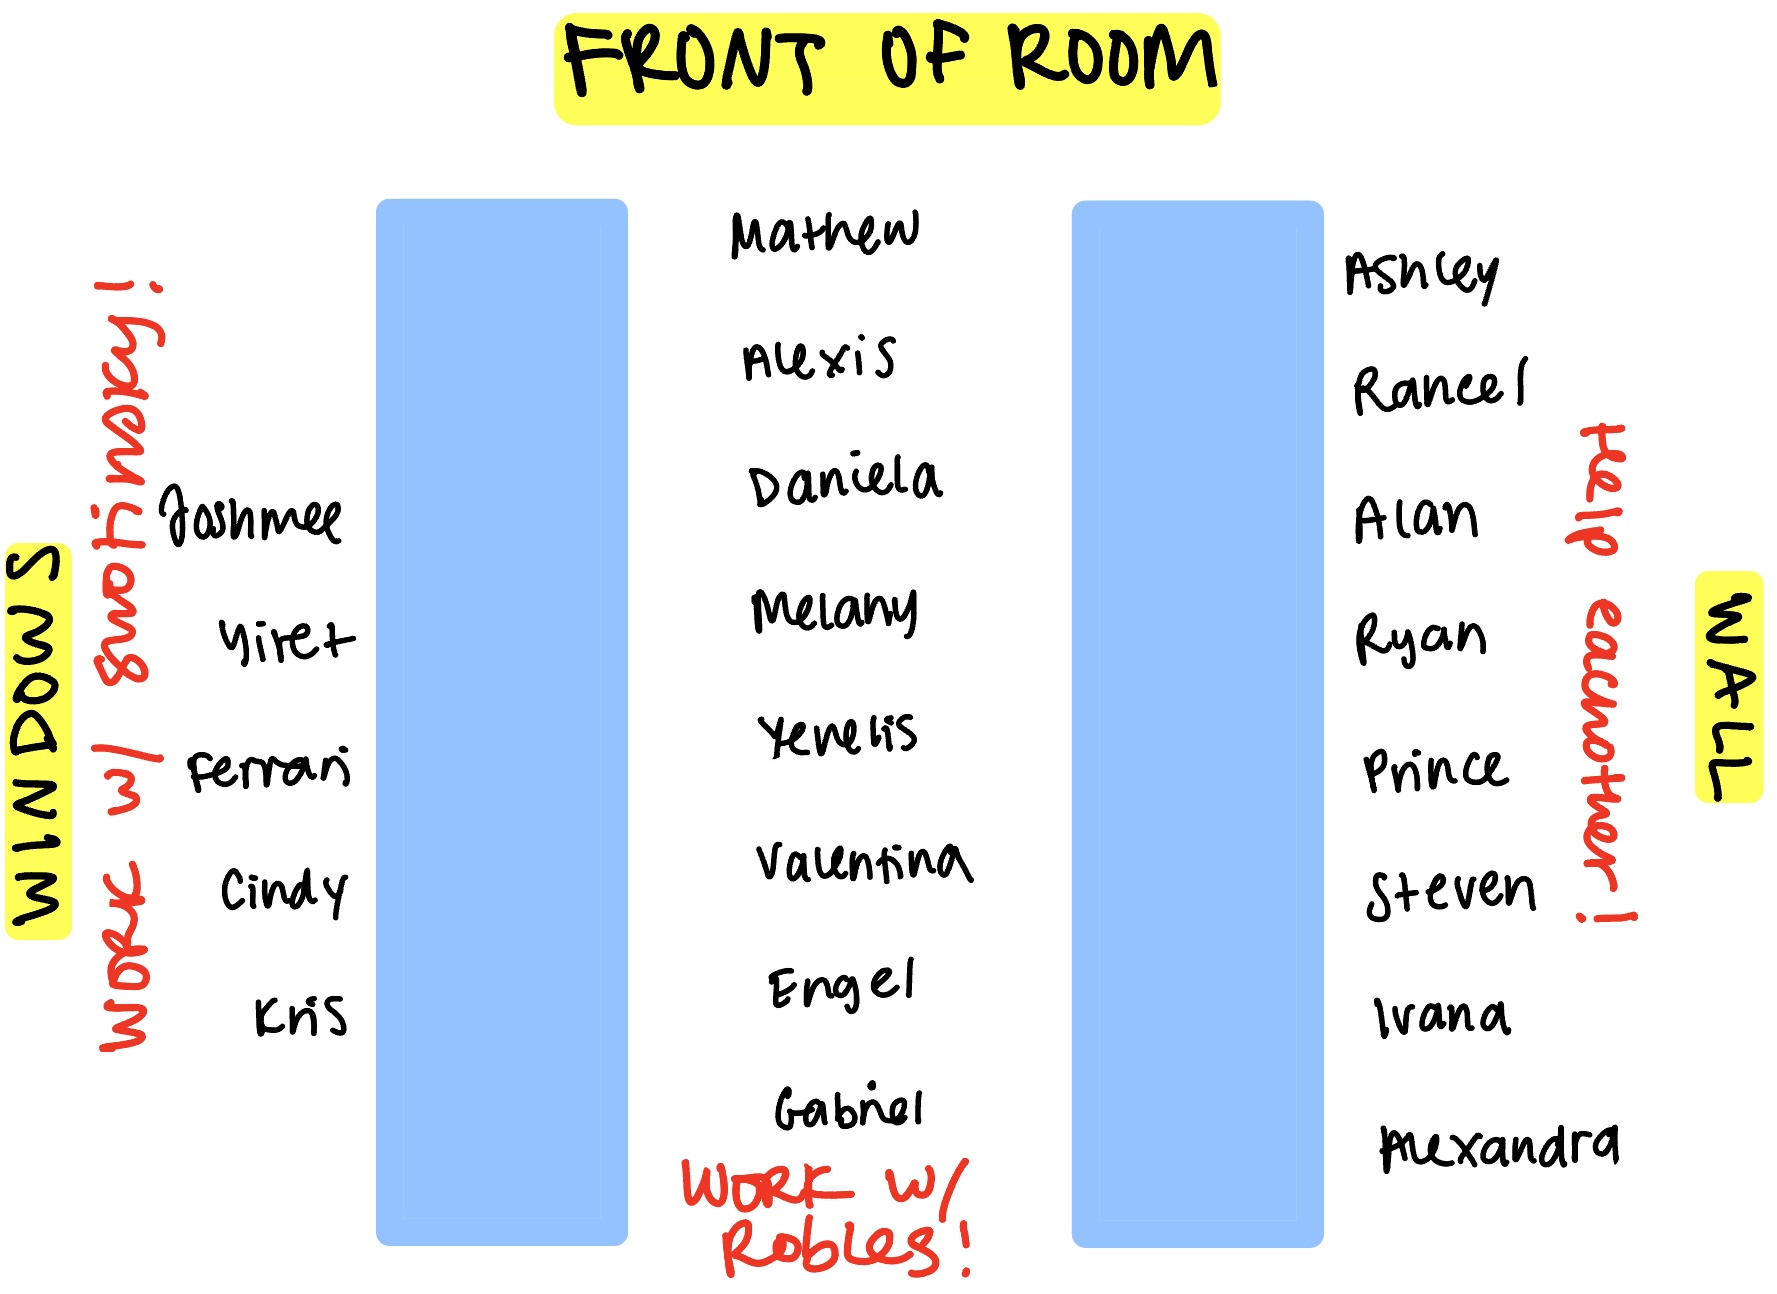 FRONT OF ROOM
WINDOWS
WORK W/ Smotinsky!
Joshmee
Yiret
Ferrari
Cindy
Kris
Mathew
Alexis
Daniela
Melany
Yenelis
Valentina
Engel
Gabriel
WORK W/
Robles!
Ashley
Rancel
Alan
Ryan
Prince
Steven
Ivana
Alexandra
Help eachother!
WALL